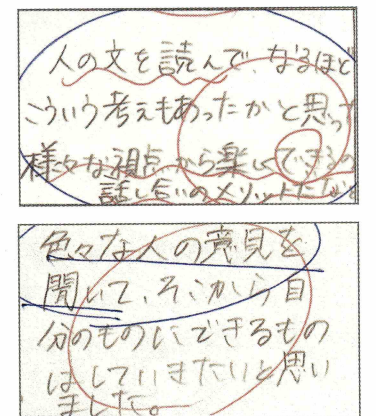 人の文を読んで、なるほど
こういう考えもあったかと思っ
様々な視点から楽しくできるの
話し合いのメリットだな
色々な人の意見を
聞いて、そこから自
分のものにできるもの
はしていきたいと思い
ました。